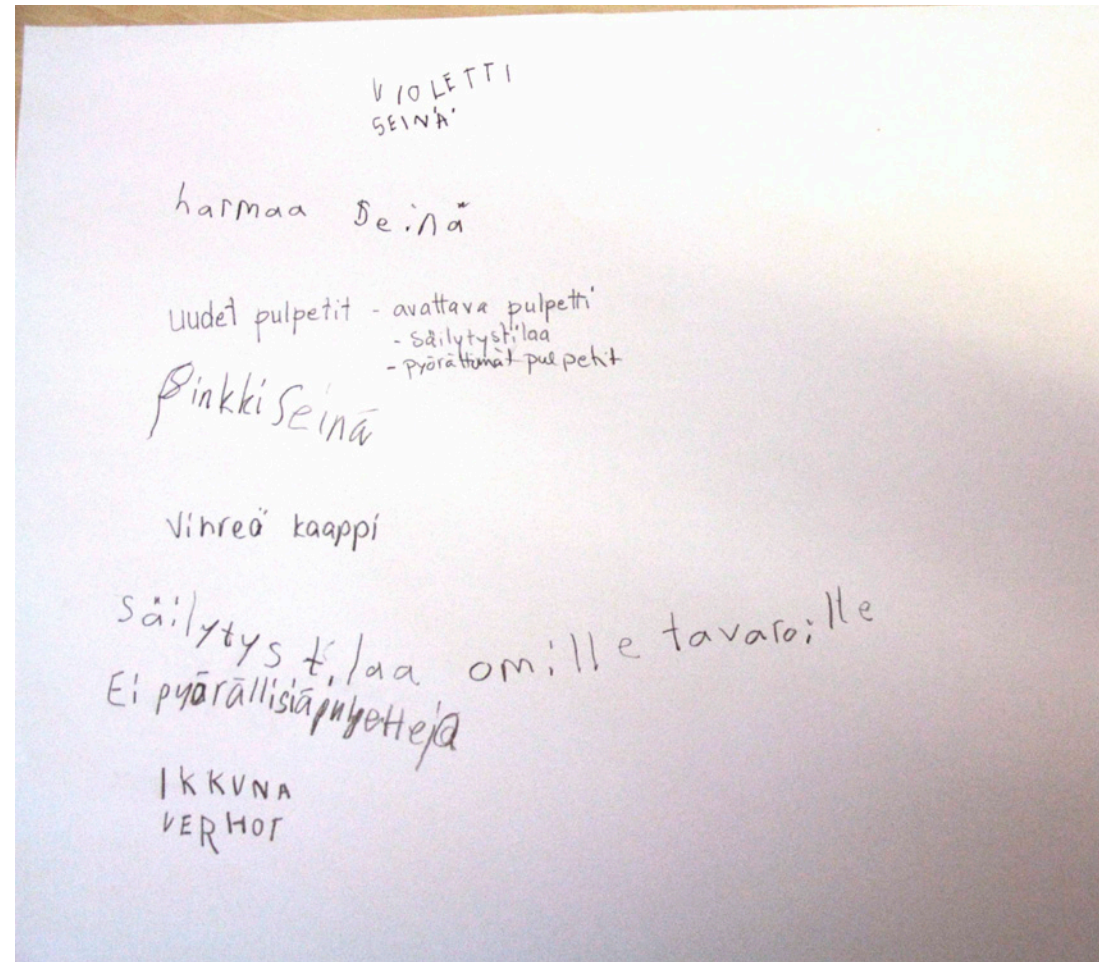 VIOLETTI
SEINÄ
harmaa seinä
uudet pulpetit - avattava pulpetti
- säilytystilaa
- pyörättömät pulpetit
Pinkki seinä
vihreä kaappi
säilytystilaa omille tavaroille
Ei pyörällisiä pulpetteja
IKKUNA
VERHOT